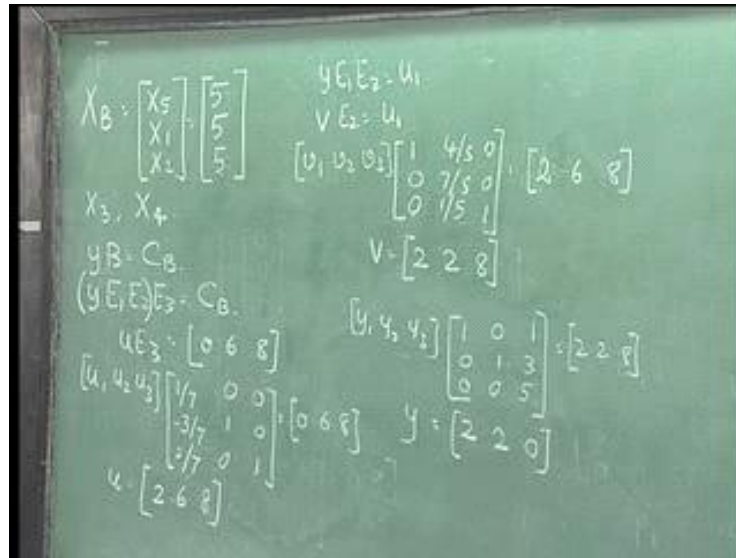 X_B = [X5 X1 X2] = [5 5 5]
X3, X4
yB = C_B.
(yE1E2)E3 = C_B.
uE3 = [0 6 8]
[u1 u2 u3] [1/7 0 0
-3/7 1 0
2/7 0 1] = [0 6 8]
u = [2 6 8]
yE1E2 = u1
VE2 = u1
[v1 v2 v3] [1 4/5 0
0 7/5 0
0 1/5 1] = [2 6 8]
V = [2 2 8]
[y1 y2 y3] [1 0 1
0 1 3
0 0 5] = [2 2 8]
y = [2 2 0]